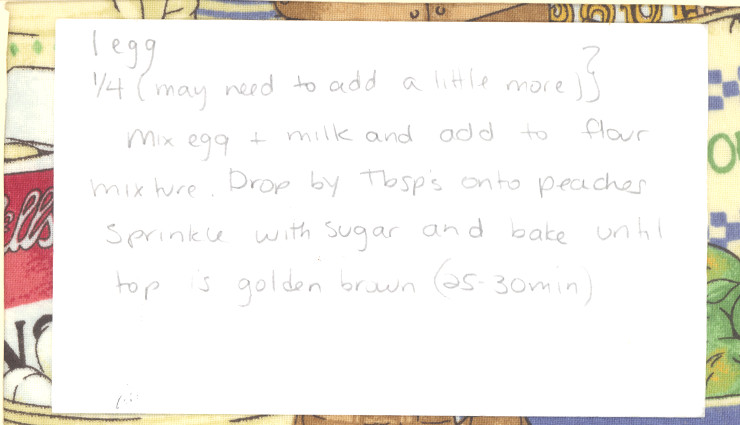 1 egg
1/4 (may need to add a little more) }
Mix egg + milk and add to flour
mixture. Drop by Tbsp's onto peaches
Sprinkle with sugar and bake until
top is golden brown (25-30min)